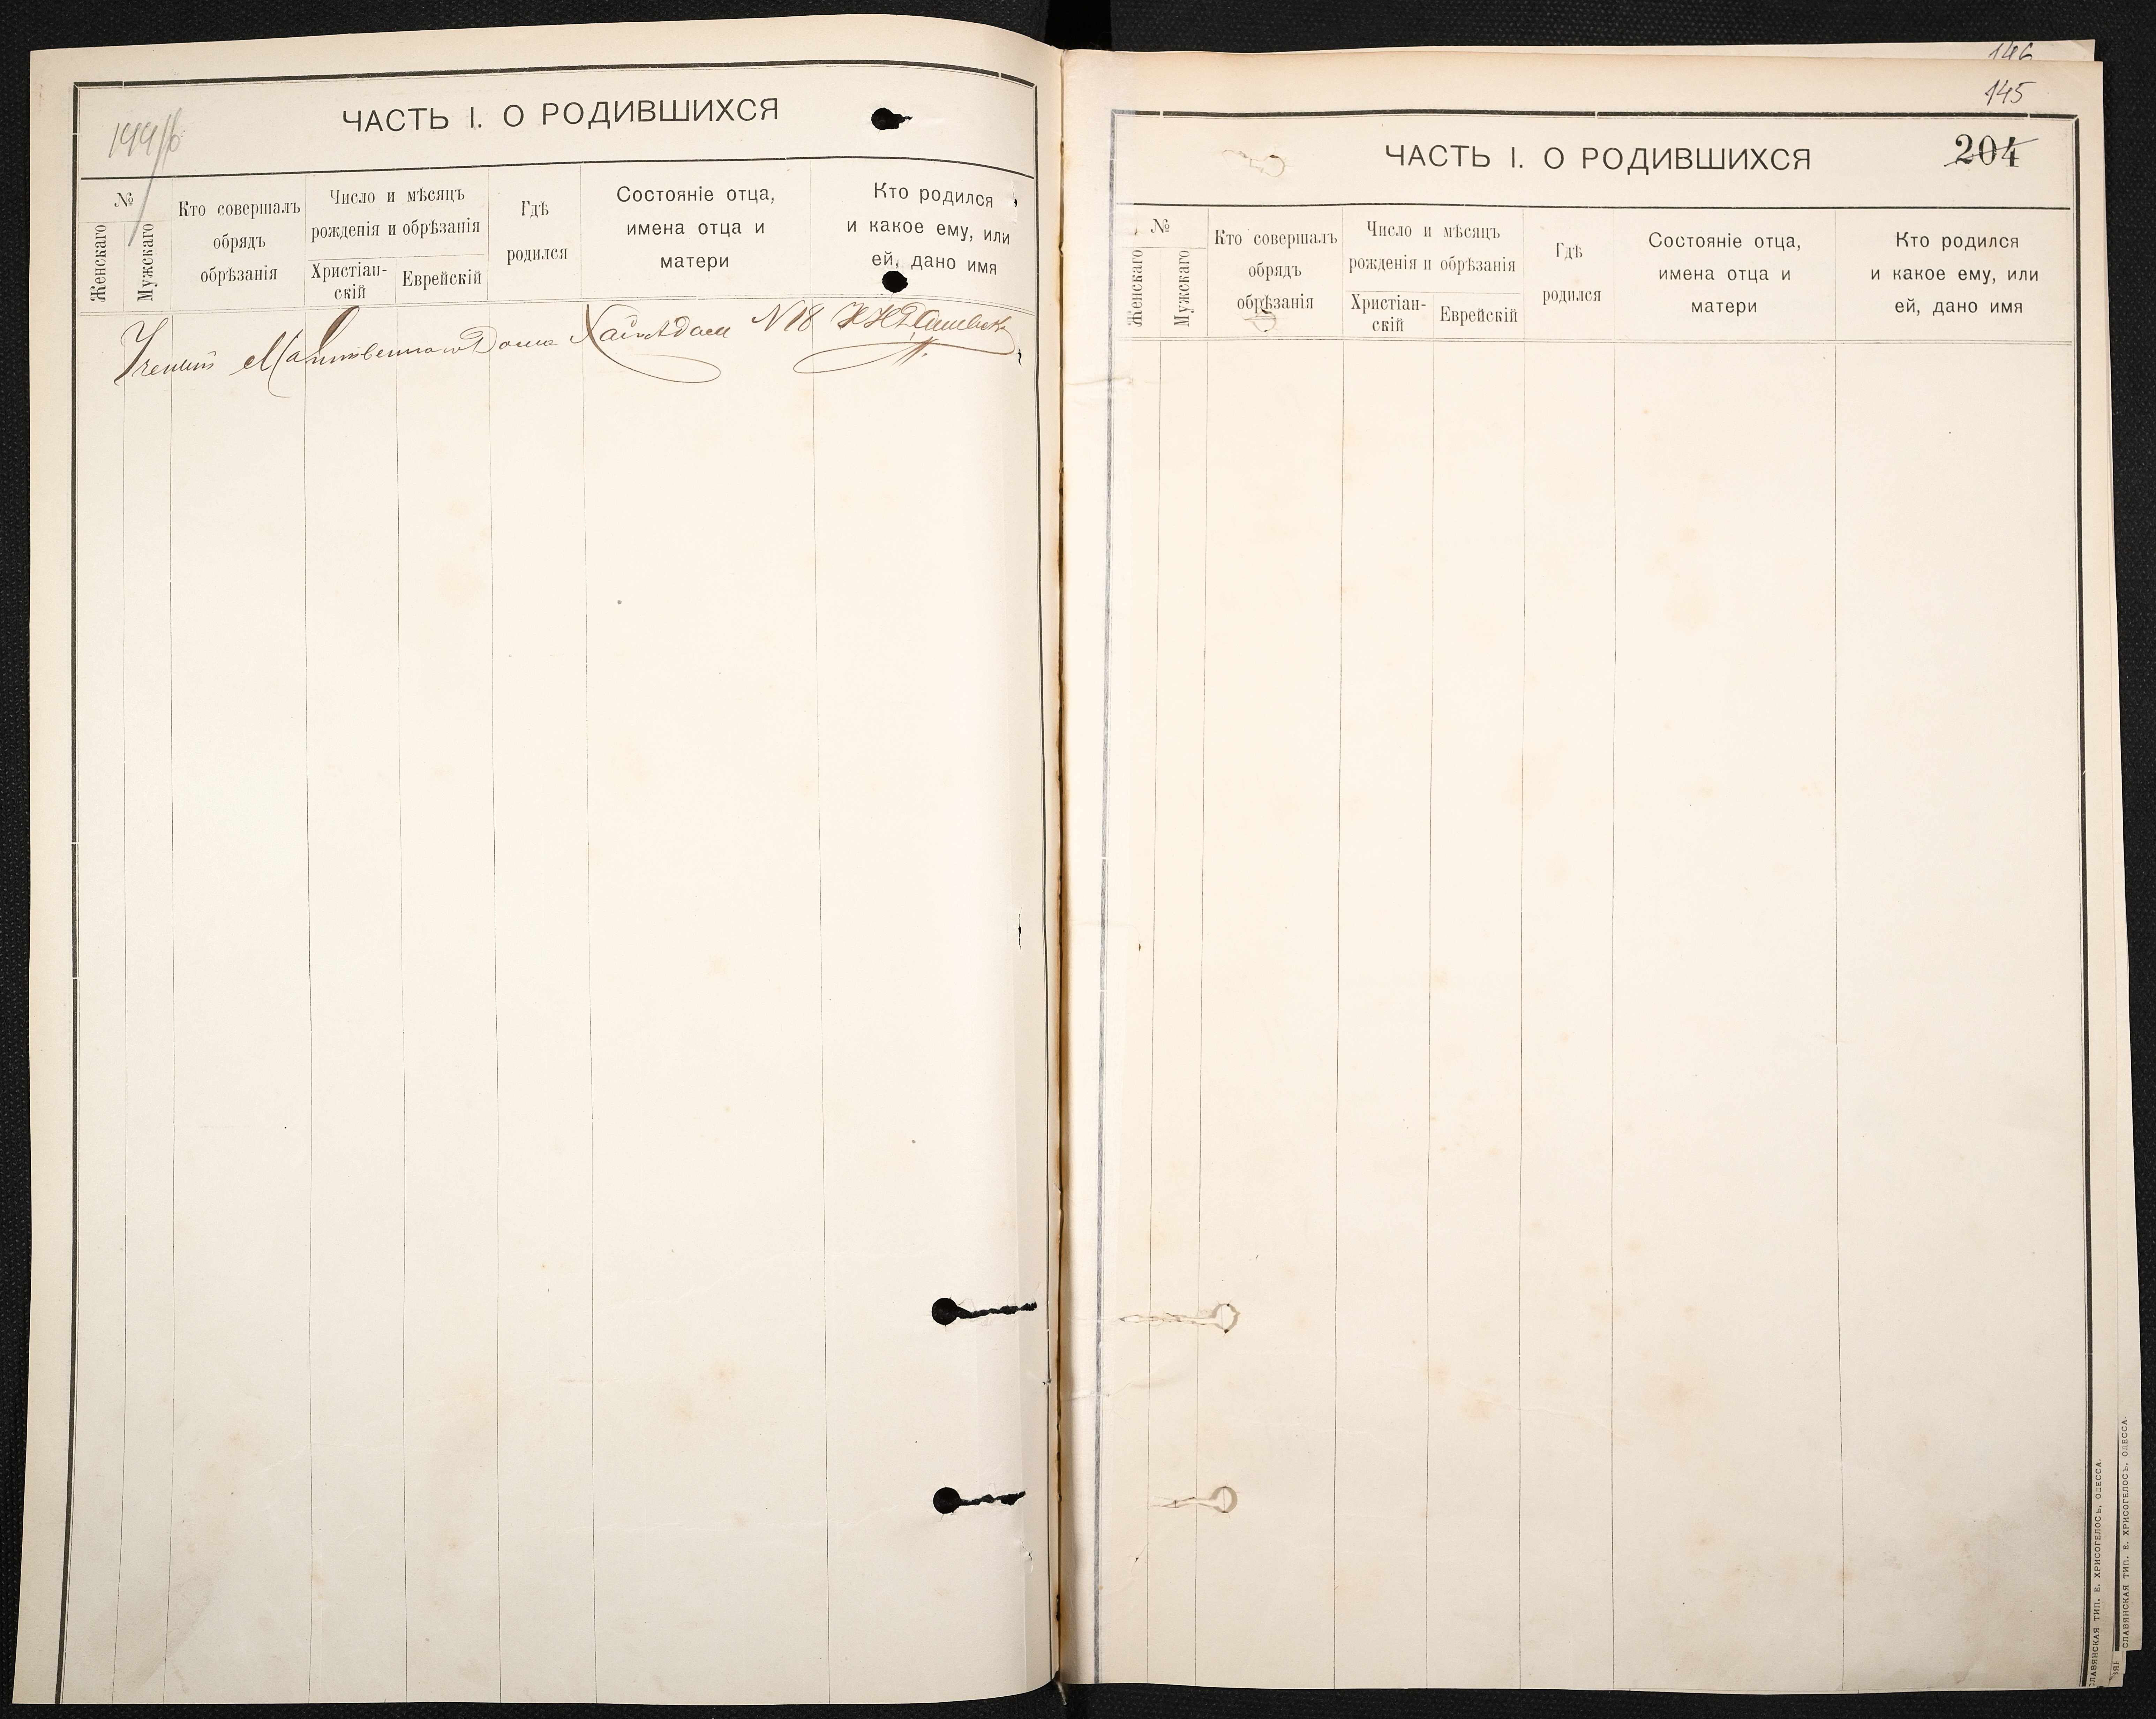 144об
ЧАСТЬ I. О РОДИВШИХСЯ
№
Женскаго
Мужскаго
Кто совершалъ
обрядъ
обрѣзанія
Число и мѣсяцъ
рожденія и обрѣзанія
Христіан-
скій
Еврейскій
Гдѣ
родился
Состояніе отца,
имена отца и
матери
Кто родился
и какое ему, или
ей, дано имя
Ученый Молитвеннаго Дома ХаиАдам N 18
146
145
204
ЧАСТЬ I. О РОДИВШИХСЯ
№
Женскаго
Мужскаго
Кто совершалъ
обрядъ
обрѣзанія
Число и мѣсяцъ
рожденія и обрѣзанія
Христіан-
скій
Еврейскій
Гдѣ
родился
Состояніе отца,
имена отца и
матери
Кто родился
и какое ему, или
ей, дано имя
СЛАВЯНСКАЯ ТИП. Е. ХРИСОГЕЛОСЪ, ОДЕССА.
СЛАВЯНСКАЯ ТИП. Е. ХРИСОГЕЛОСЪ, ОДЕССА.